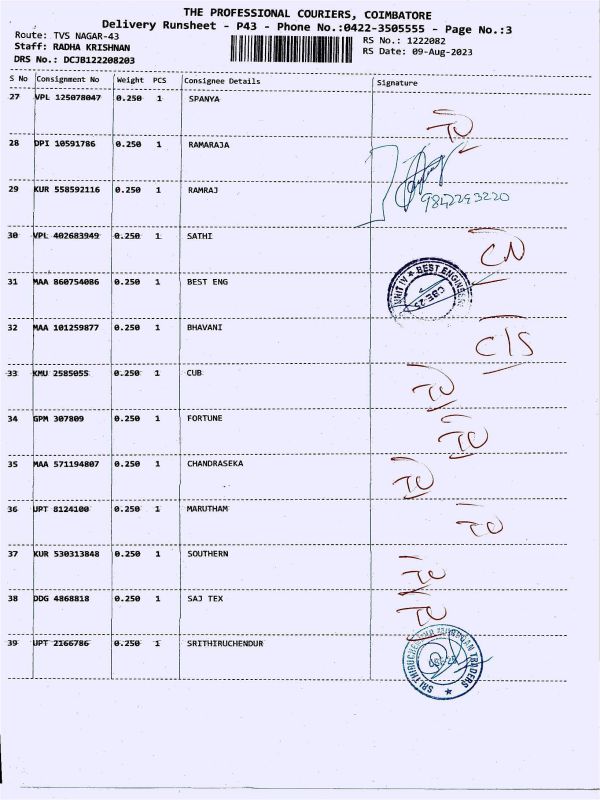 THE PROFESSIONAL COURIERS, COIMBATORE
Delivery Runsheet - P43 - Phone No.:0422-3505555 - Page No.:3
Route: TVS NAGAR-43
RS No.: 1222082
Staff: RADHA KRISHNAN
RS Date: 09-Aug-2023
DRS No.: DCJB122208203
S No Consignment No Weight PCS Consignee Details Signature
27 VPL 125078047 0.250 1 SPANYA
28 DPI 10591786 0.250 1 RAMARAJA
29 KUR 558592116 0.250 1 RAMRAJ
9842293220
30 VPL 402683949 0.250 1 SATHI
CN
31 MAA 860754086 0.250 1 BEST ENG
UNIT IV ★ BEST ENGINEERS
CBE-25
32 MAA 101259877 0.250 1 BHAVANI
C/S
33 KMU 2585055 0.250 1 CUB
34 GPM 307809 0.250 1 FORTUNE
35 MAA 571194807 0.250 1 CHANDRASEKA
36 UPT 8124100 0.250 1 MARUTHAM
37 KUR 530313848 0.250 1 SOUTHERN
38 DDG 4868818 0.250 1 SAJ TEX
39 UPT 2166786 0.250 1 SRITHIRUCHENDUR
SRI THIRUCHENDUR MURUGAN TRADERS